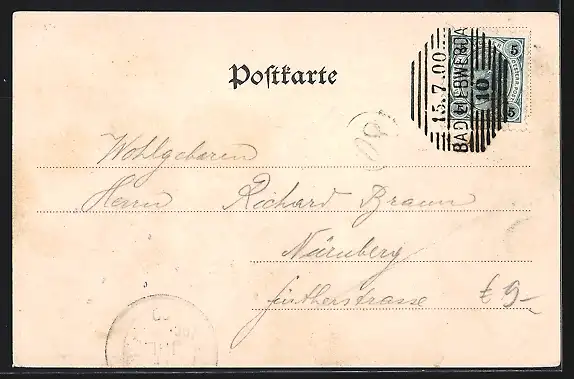 Postkarte
15.7.00
BAD LIEBWERDA
10
5
5
Wohlgeboren
Herrn Richard Braun
Nürnberg
£ 9-